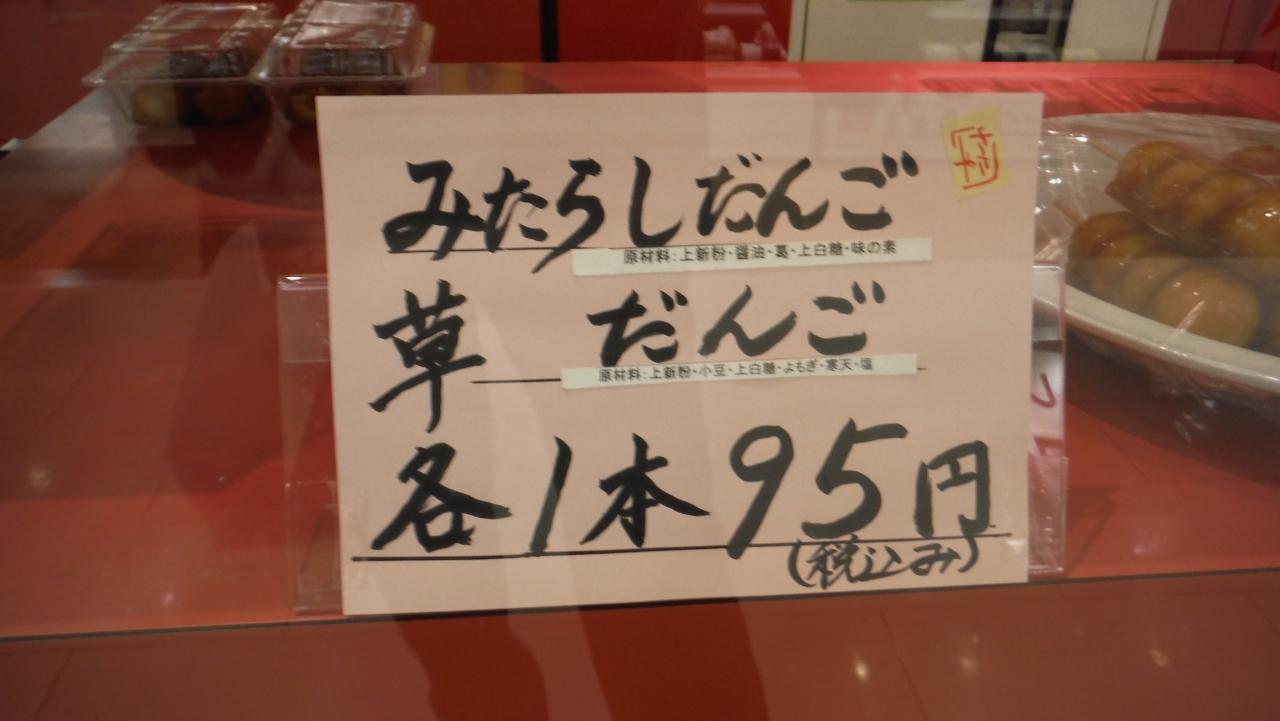 みたらしだんご
原材料：上新粉・醤油・葛・上白糖・味の素
草だんご
原材料：上新粉・小豆・上白糖・よもぎ・寒天・塩
各1本95円
(税込み)